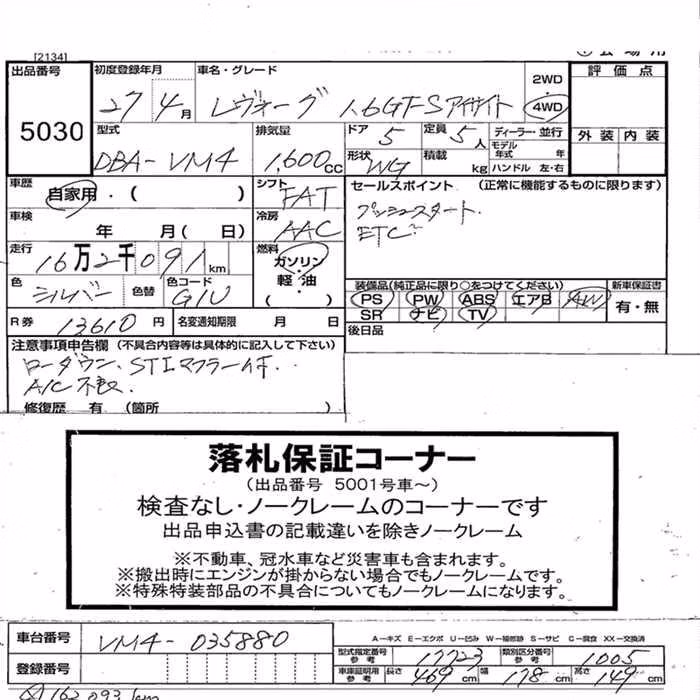 [2134]
出品番号 初度登録年月 車名・グレード 2WD 評価点
5030 27 4月 レヴォーグ 1.6GT-Sアイサイト 4WD
型式 排気量 ドア 定員 ディーラー・並行 外装 内装
DBA-VM4 1,600cc 5 5人 モデル年式 年
形状 WG 積載 kg ハンドル 左・右
車歴 自家用・( ) シフト FAT セールスポイント (正常に機能するものに限ります)
車検 年 月( 日) 冷房 AAC プッシュスタート.
ETC
走行 16万2千091km 燃料 ガソリン・軽油・( )
色 シルバー 色替 色コード G1U
装備品(純正品に限り○をつけてください) 新車保証書
PS PW ABS エアB AW 有・無
SR ナビ TV
R券 13610円 名変通知期限 月 日 後日品
注意事項申告欄 (不具合内容等は具体的に記入して下さい)
ローダウン、STIマフラー付.
A/C不良.
修復歴 有 (箇所 )
落札保証コーナー
(出品番号 5001号車~)
検査なし・ノークレームのコーナーです
出品申込書の記載違いを除きノークレーム
※不動車、冠水車など災害車も含まれます。
※搬出時にエンジンが掛からない場合でもノークレームです。
※特殊特装部品の不具合についてもノークレームになります。
車台番号 VM4-035880 A-キズ E-エクボ U-凹み W-補修跡 S-サビ C-腐食 XX-交換済
型式指定番号 参考 17723 類別区分番号 参考 1005
登録番号 車庫証明用 参考 長さ 469cm 幅 178cm 高さ 149cm
162,093km